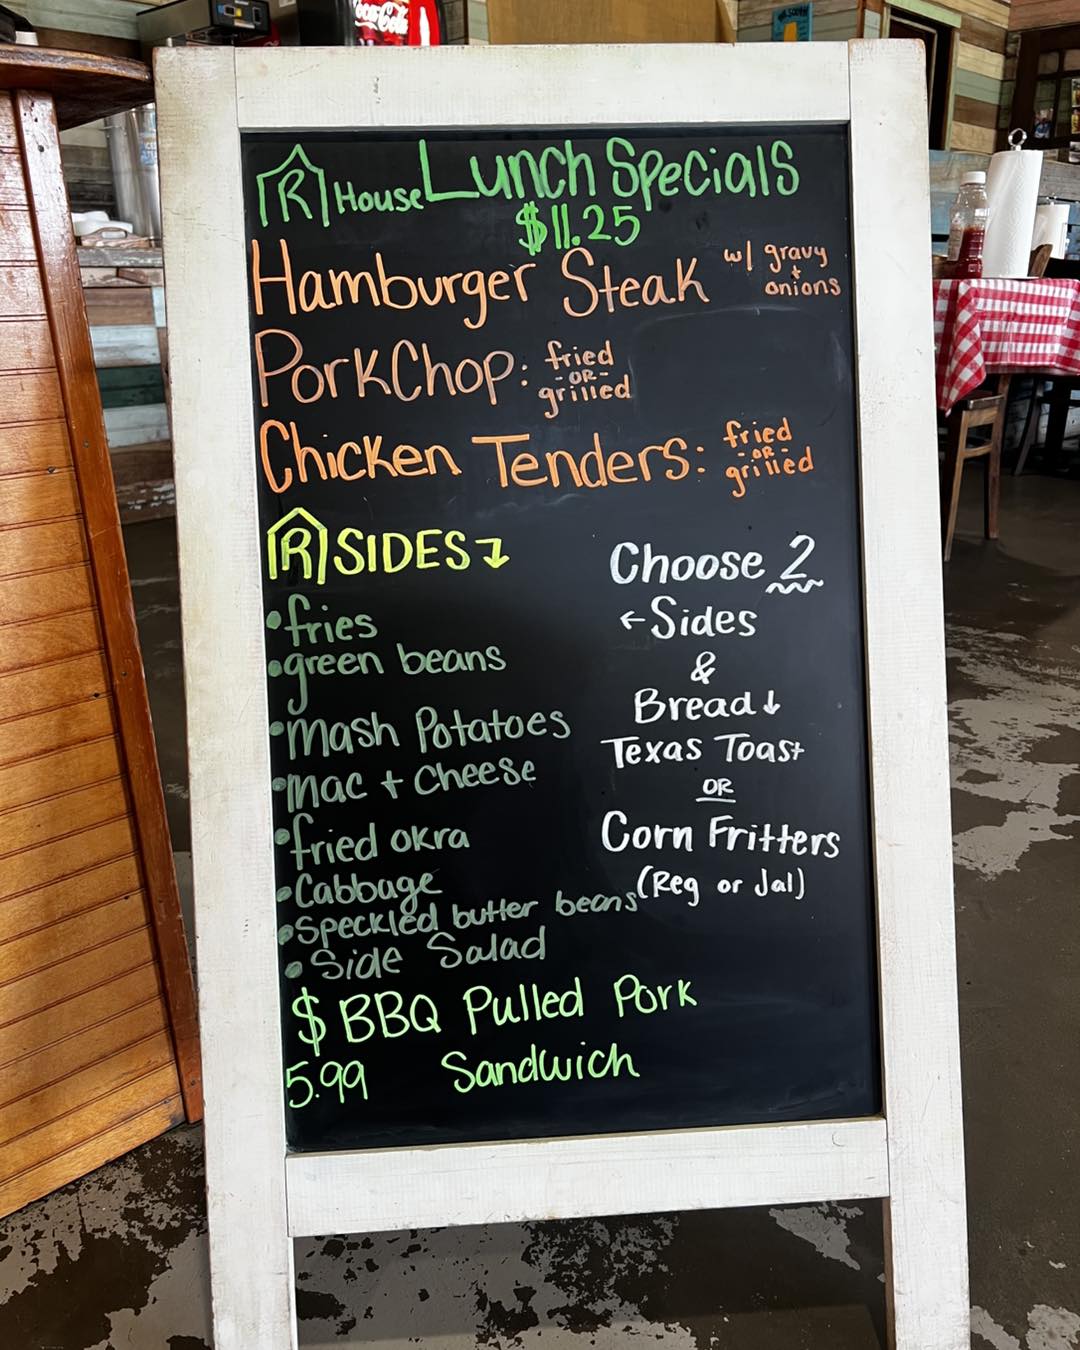 Coca-Cola
R House Lunch Specials
$11.25
Hamburger Steak w/ gravy + onions
PorkChop: fried -OR- grilled
Chicken Tenders: fried -OR- grilled
R SIDES
•fries
•green beans
•Mash Potatoes
•Mac + Cheese
•fried okra
•Cabbage
•Speckled butter beans
•Side Salad
Choose 2
←Sides
&
Bread↓
Texas Toast
OR
Corn Fritters
(Reg or Jal)
$ BBQ Pulled Pork
5.99 Sandwich